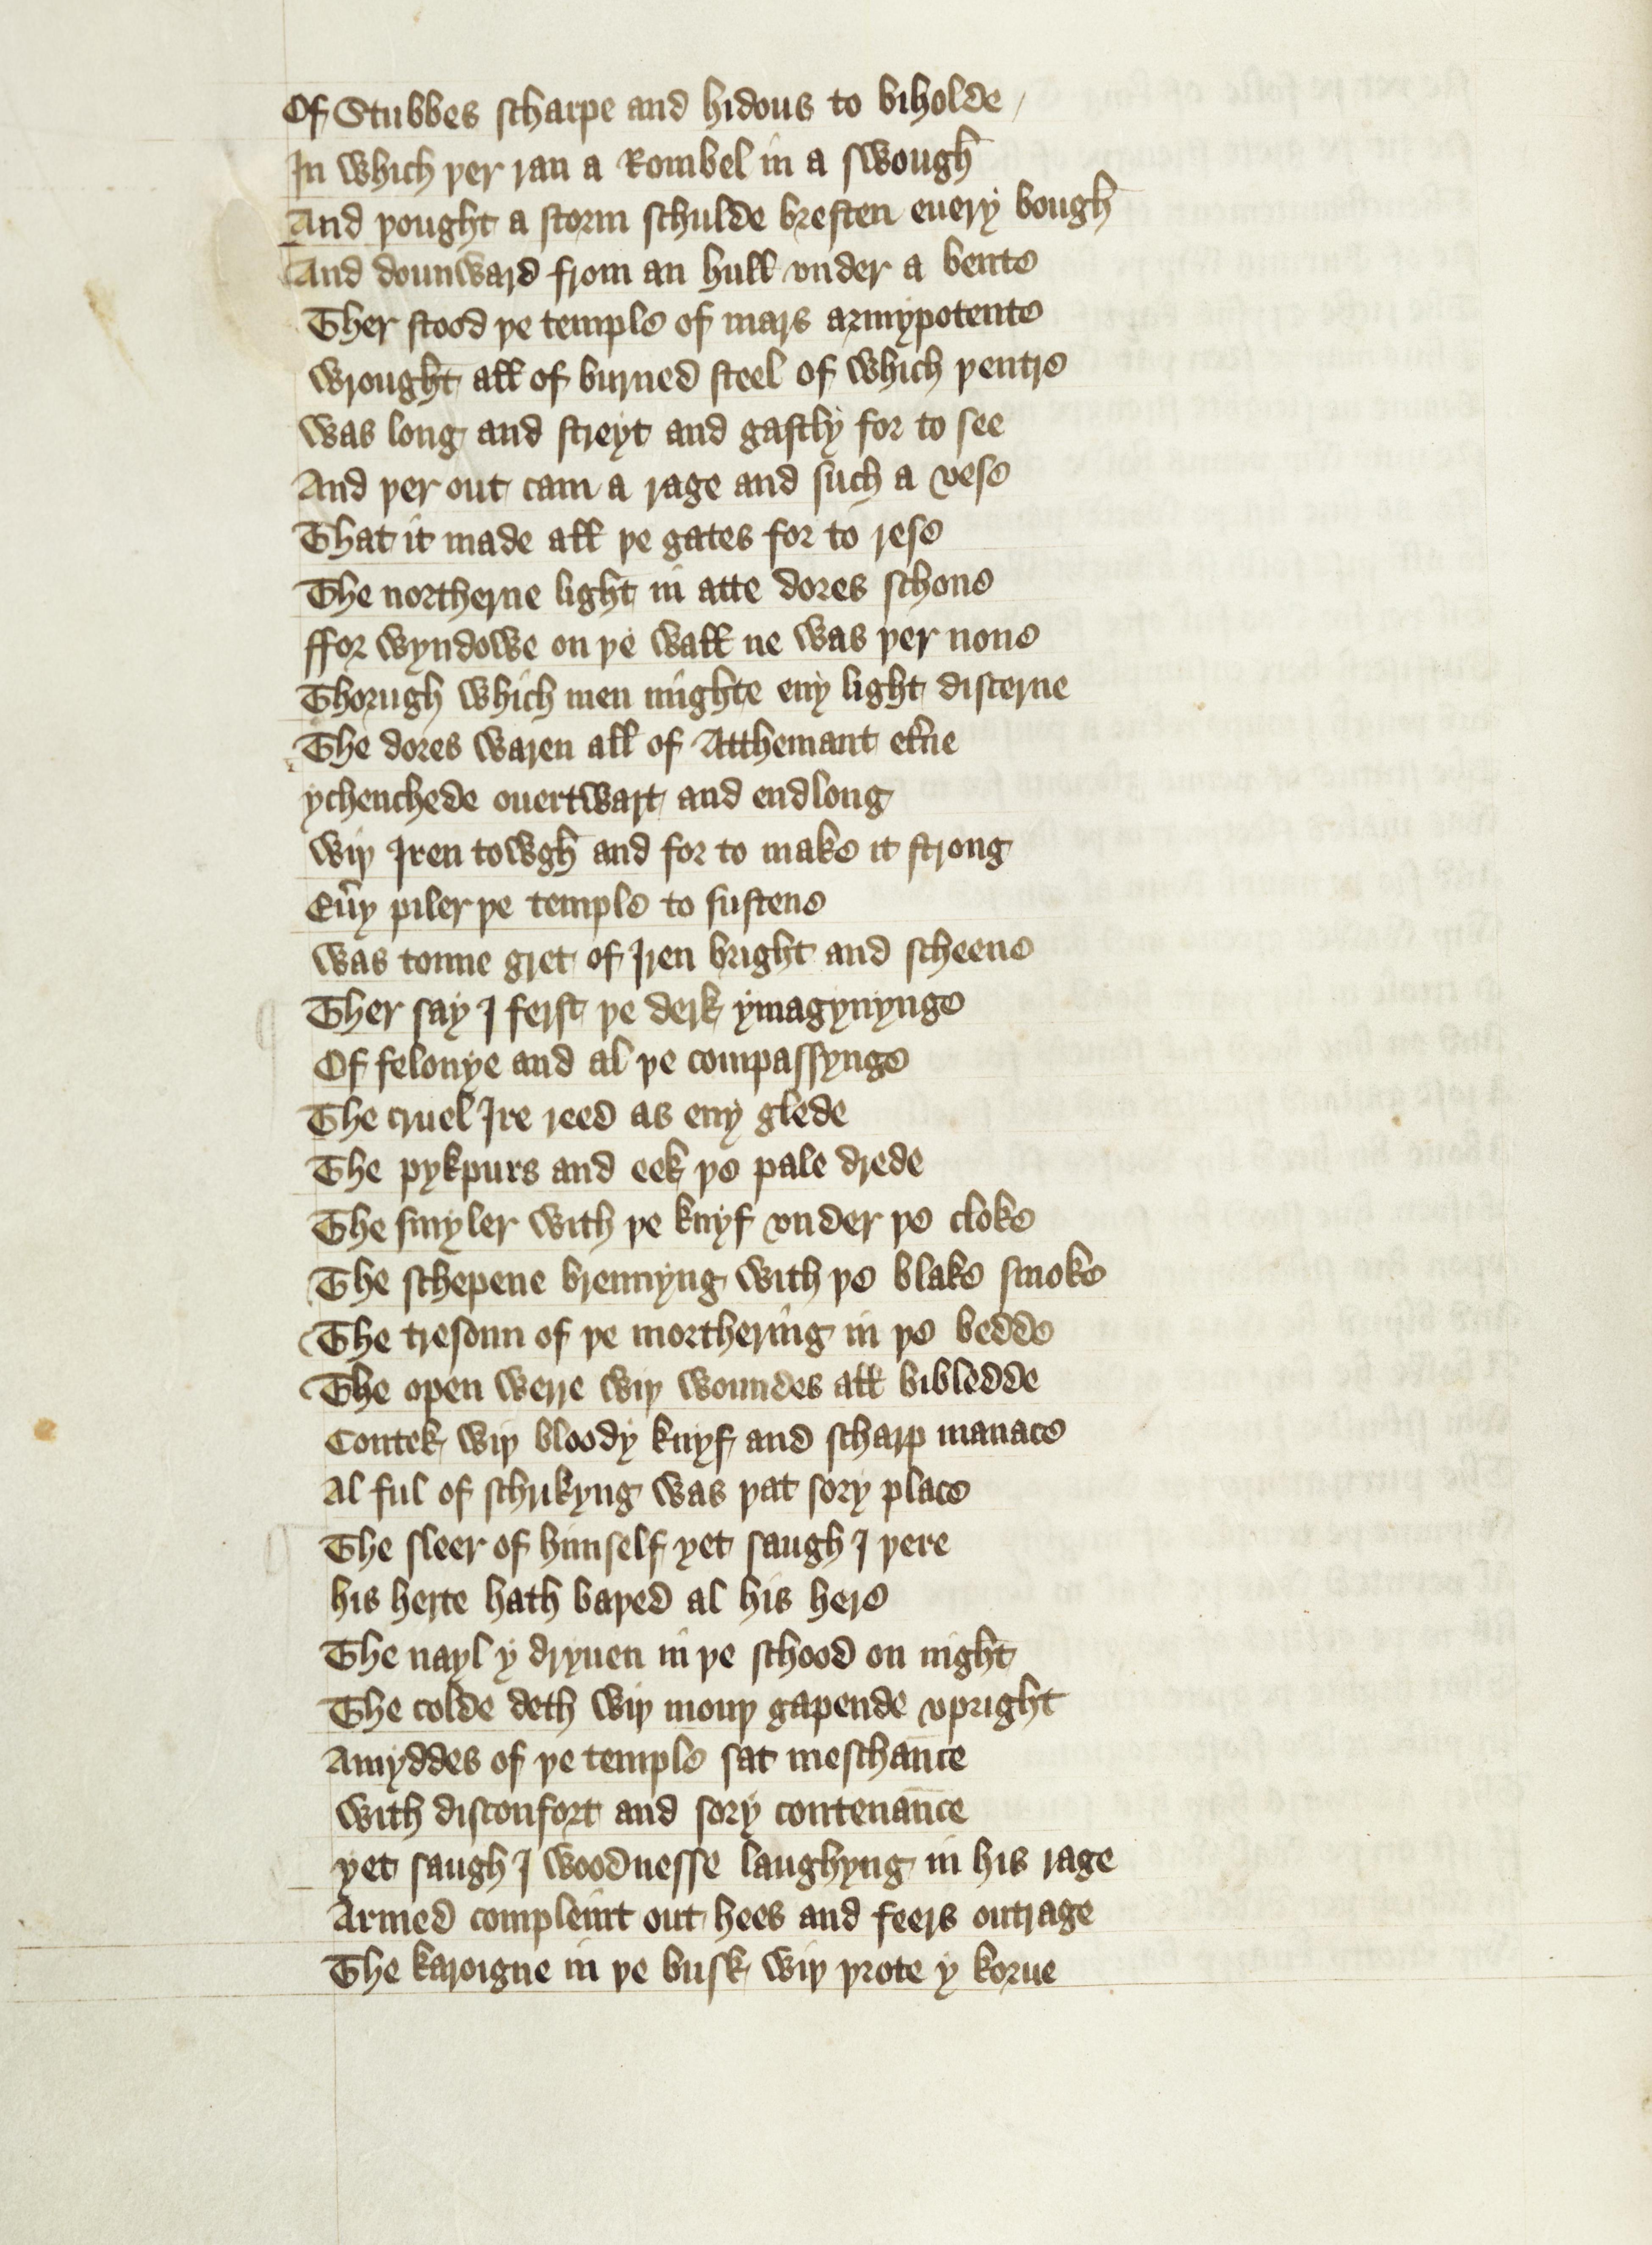 Of Stubbes scharpe and hidous to biholde /
In which þer ran a Rombel in a swough
And þought a storm schulde bresten euery bough
And dounward from an hull vnder a bente
Ther stood þe temple of mars armypotente
Wrought all of burned steel of which þentre
Was long and streyt and gastly for to see
And þer out cam a rage and such a vese
That it made all þe gates for to rese
The northerne light in atte dores schone
ffor wyndowe on þe wall ne was þer none
Thorugh which men mighte eny light discerne
The dores waren all of Atthemant et̉ne
ychenchede ouertwart and endlong
Wiþ Iren towgh and for to make it strong
Eủy piler þe temple to sustene
Was tonne gret of Iren bright and scheene
Ther say I ferst þe derk ymagynynge
Of felonye and al þe compassynge
The cruel Ire reed as eny glede
The pykpurs and eek þe pale drede
The smyler with þe knyf vnder þe cloke
The schepene brennyng with þe blake smoke
The tresoun of þe morthering in þe bedde
The open werre wiþ woundes all bibledde
Contek wiþ bloody knyf and scharp manace
Al ful of schrikyng was þat sory place
The sleer of himself yet saugh I þere
his herte hath baþed al his here
The nayl y dryuen in þe schood on night
The colde deth wiþ mouþ gapende vpright
Amyddes of þe temple sat meschance
With disconfort and sory contenance
yet saugh I woodnesse laughyng in his rage
Armed compleint out hees and feers outrage
The karoigne in þe busk wiþ þrote y korue